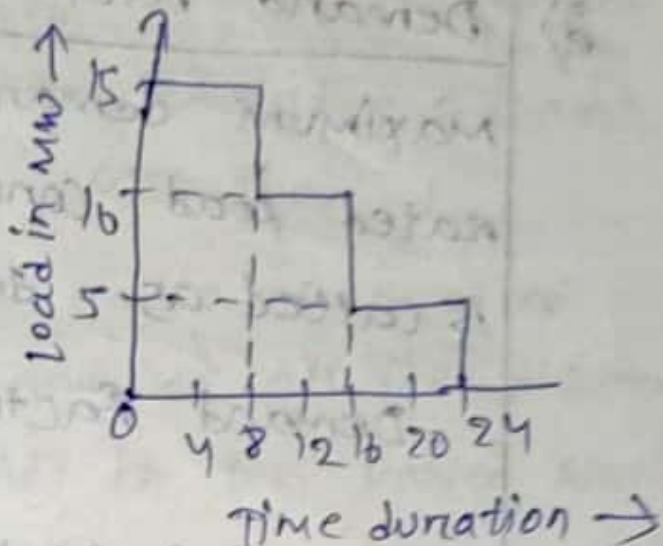 Load in MW →
15
10
5
0
4 8 12 16 20 24
Time duration →